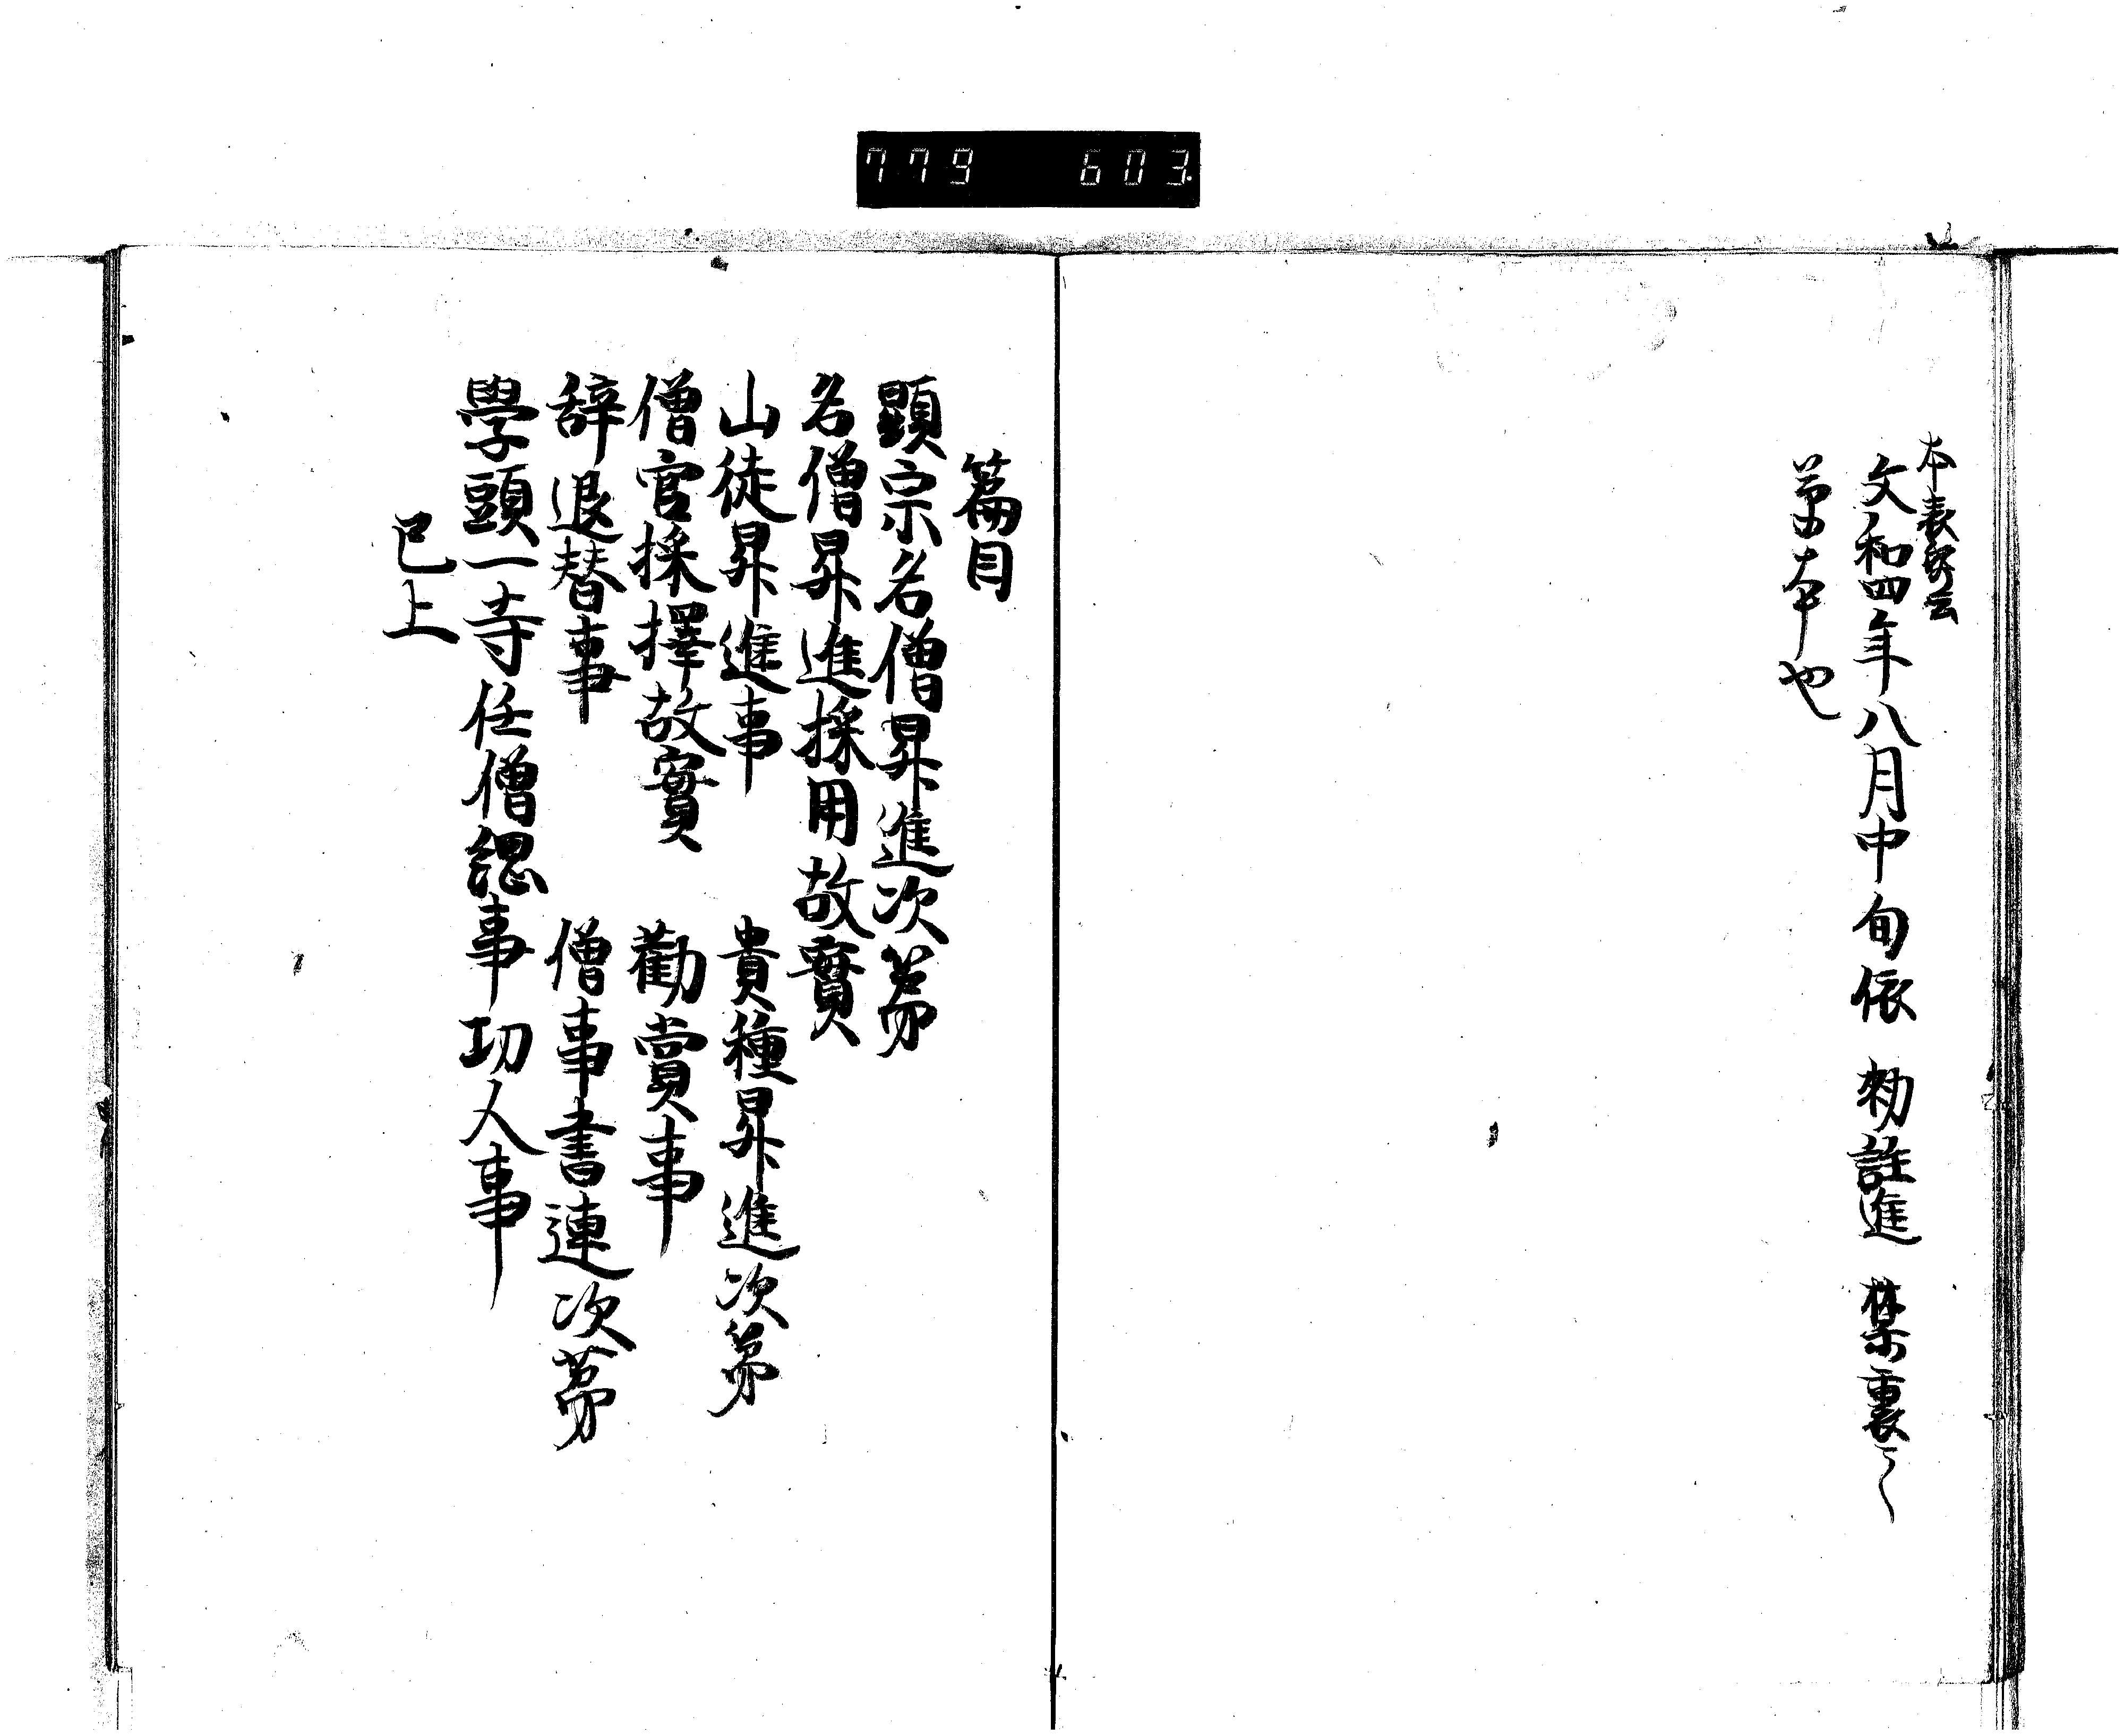 779 603
本表紙云
文和四年八月中旬依 勅註進 禁裏之
草本也
篇目
顕宗名僧昇進次第
名僧昇進採用故實
山徒昇進事 貴種昇進次第
僧官採擇故實 勸賞事
辞退替事 僧事書連次第
學頭一寺任僧綱事功人事
已上